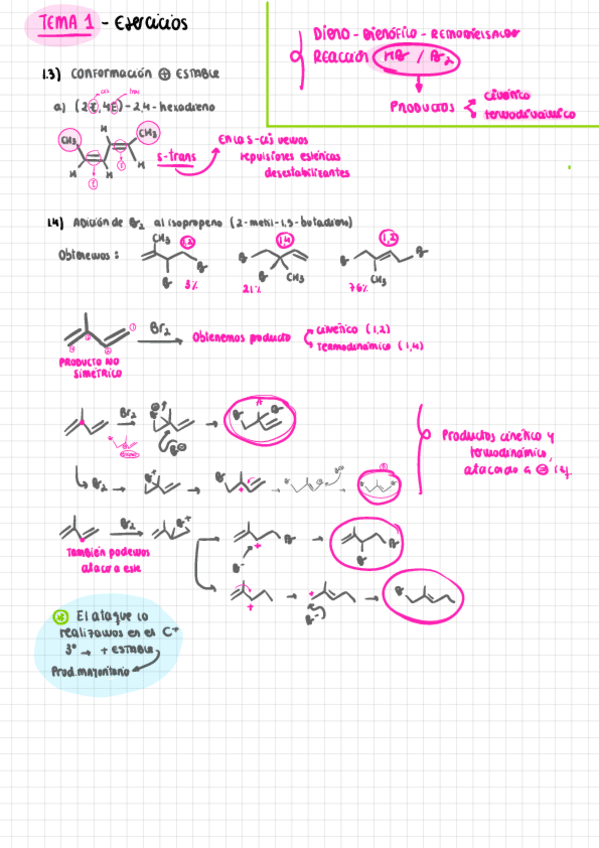 TEMA 1 - Ejercicios
DIENO - DIENÓFILO
REACCIÓN HBr / Br2
PRODUCTOS
cinético
termodinámico
1.3) CONFORMACIÓN ⊕ ESTABLE
cis trans
a) (2Z, 4E) - 2,4 - hexadieno
CH3 CH3
H H H H
Z E
s-trans
En la s-cis vemos
repulsiones estéricas
desestabilizantes
1.4) Adición de Br2 al isopropeno (2-metil-1,3-butadieno)
Obtenemos :
CH3 1,2 Br Br 3%
1,4 Br CH3 21%
1,2 Br Br CH3 76%
Br2
Obtenemos producto
cinético (1,2)
Termodinámico (1,4)
PRODUCTO NO
SIMÉTRICO
Br2
Productos cinético y
termodinámico,
Br2
Br2
También podemos
atacar a este
El ataque lo
realizamos en el C+
3º → + ESTABLE
Prod. mayoritario